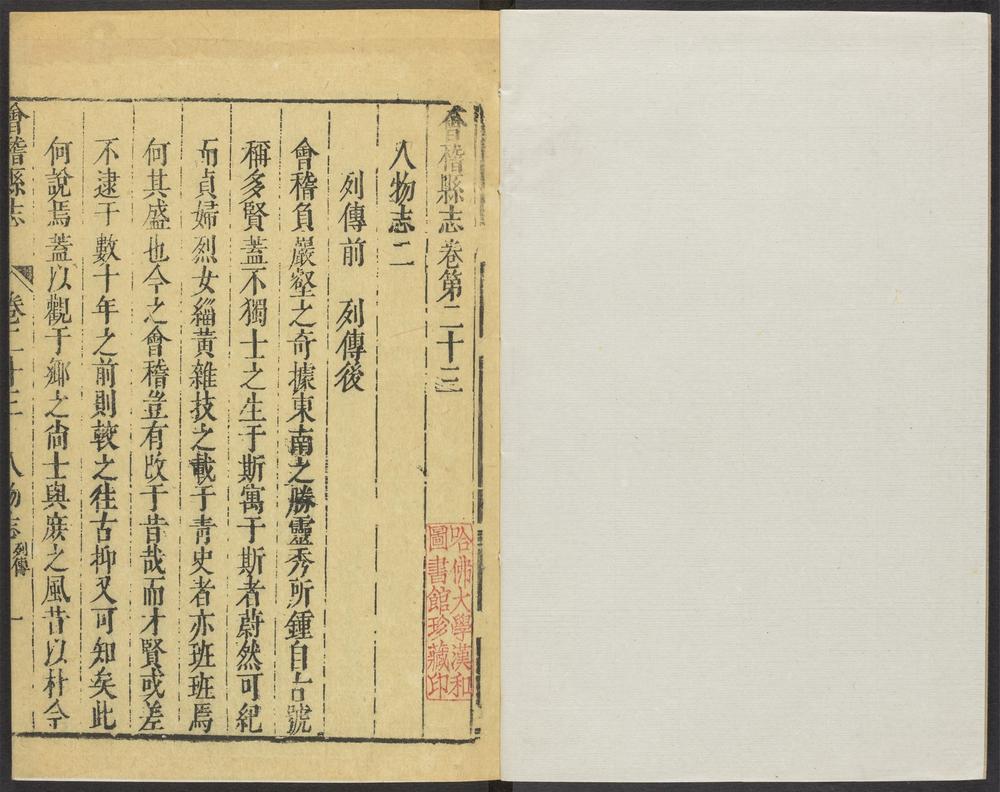 會稽縣志卷第二十三
人物志二
列傳前 列傳後
會稽負巖壑之奇據東南之勝靈秀所鍾自古號
稱多賢蓋不獨士之生于斯寓于斯者蔚然可紀
而貞婦烈女緇黃雜技之載于青史者亦班班焉
何其盛也今之會稽豈有改于昔哉而才賢或差
不逮于數十年之前則較之往古抑又可知矣此
何說焉蓋以觀于鄉之尚士與庶之風昔以朴今
會稽縣志 卷二十三 人物志 列傳 一
哈佛大學漢和
圖書館珍藏印